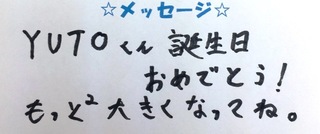 ☆メッセージ☆
YUTOくん 誕生日
おめでとう!
もっと²大きくなってね。